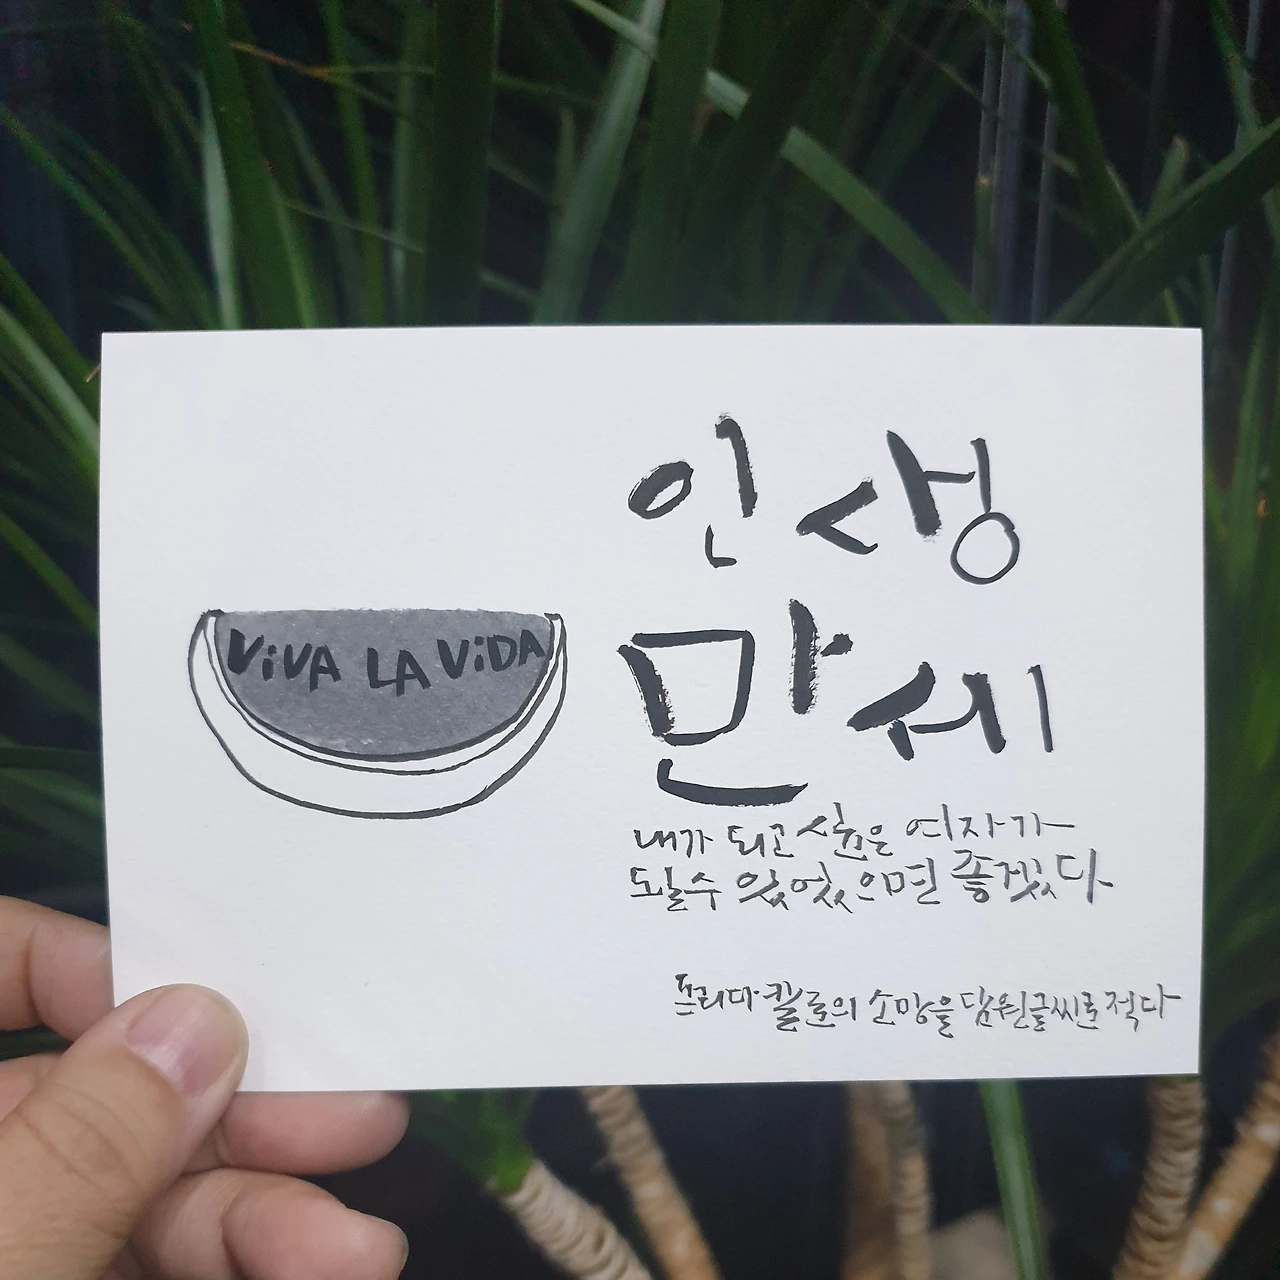 VIVA LA VIDA
인생
만세
내가 되고 싶은 여자가
도달수 있었으면 좋겠다
프리다 칼로의 소망을 담원글씨로 적다